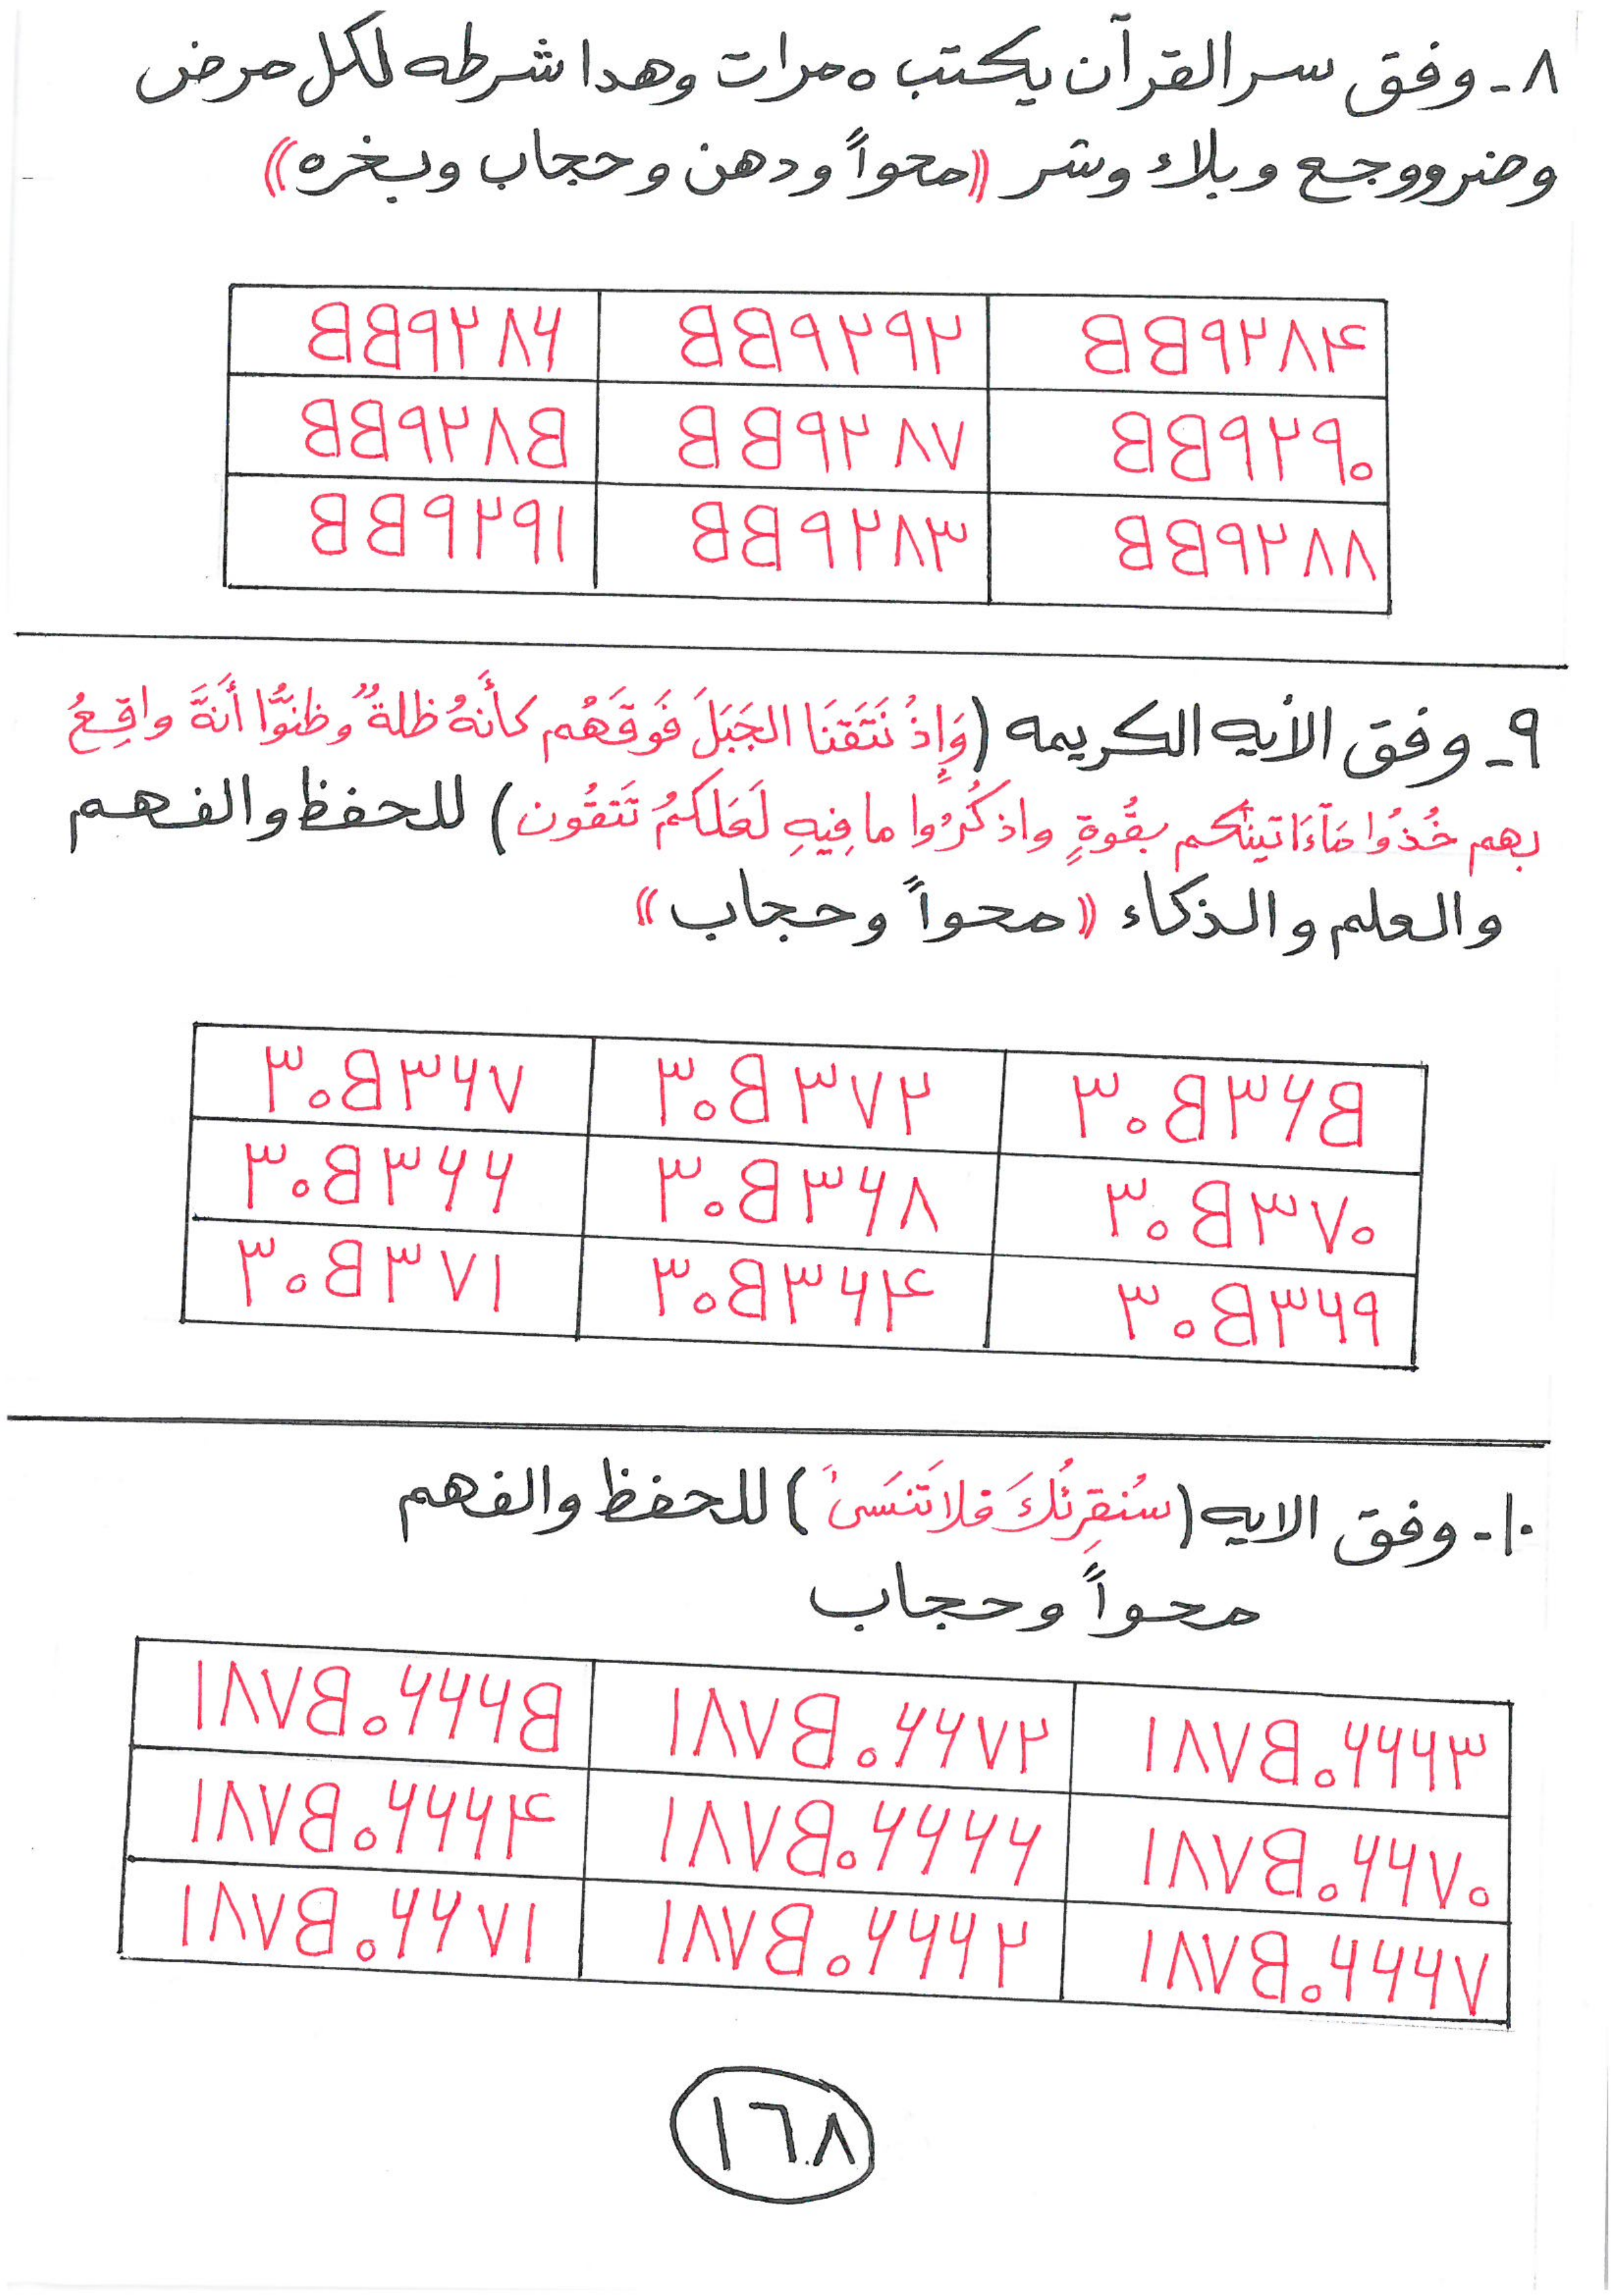 ٨- وفق سر القرآن يكتب ٥ مرات وهدا شرطه لكل مرض
وضر ووجع وبلاء وشر ((محواً ودهن وحجاب وبخره))
٥٥٩٢٨٤ ٥٥٩٢٩٢ ٥٥٩٢٨٦
٥٥٩٢٩٠ ٥٥٩٢٨٧ ٥٥٩٢٨٥
٥٥٩٢٨٨ ٥٥٩٢٨٣ ٥٥٩٢٩١
٩- وفق الأيه الكريمه (وَإِذْ نَتَقنَا الجَبَلَ فَوقَهُم كأَنهُ ظلةٌ وظنوُّا أَنهَّ واقِعُ
بهم خُذُوا مَآءَاتينَٰكم بقُوةٍ واذكُرُوا ما فِيهِ لَعَلكمُ تَتقُون) للحفظ والفهم
والعلم والذكاء ((محواً وحجاب))
٣٠٥٣٦٥ ٣٠٥٣٧٢ ٣٠٥٣٦٧
٣٠٥٣٧٠ ٣٠٥٣٦٨ ٣٠٥٣٦٦
٣٠٥٣٦٩ ٣٠٥٣٦٤ ٣٠٥٣٧١
١٠- وفق الايه (سَنُقرِئُكَ فلا تَنسَىَٰ) للحفظ والفهم
محواً وحجاب
١٨٧٥٠٦٦٦٣ ١٨٧٥٠٦٦٧٢ ١٨٧٥٠٦٦٦٥
١٨٧٥٠٦٦٧٠ ١٨٧٥٠٦٦٦٦ ١٨٧٥٠٦٦٦٤
١٨٧٥٠٦٦٦٧ ١٨٧٥٠٦٦٦٢ ١٨٧٥٠٦٦٧١
١٦٨